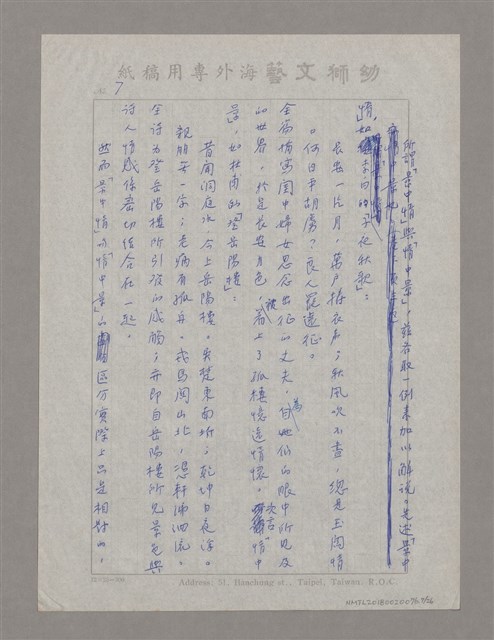 幼獅文藝海外專用稿紙
7
所謂「景中情」與「情中景」，茲各取一例來加以解說。先述「景中
情」，如李白的「子夜秋歌」：
長安一片月，萬戶擣衣聲；秋風吹不盡，總是玉關情
。何日平胡虜？良人罷遠征。
全篇情寫閨中婦女思念出征的丈夫，因為她仙的眼中所見及
的世界，於是長安月色，被著上了孤棲憶遠情懷。次言「情中
景」，如杜甫的「登岳陽樓」：
昔聞洞庭水，今上岳陽樓。吳楚東南坼；乾坤日夜浮。
親朋無一字；老病有孤舟。戎馬關山北，憑軒涕泗流。
全詩為登岳陽樓所引發的感觸；亦即自岳陽樓所見景色與
詩人情感係密切結合在一起。
然而「景中情」或「情中景」的區分實際上只是相對的，
Address: 51, Hanchung st., Taipei, Taiwan, R.O.C.